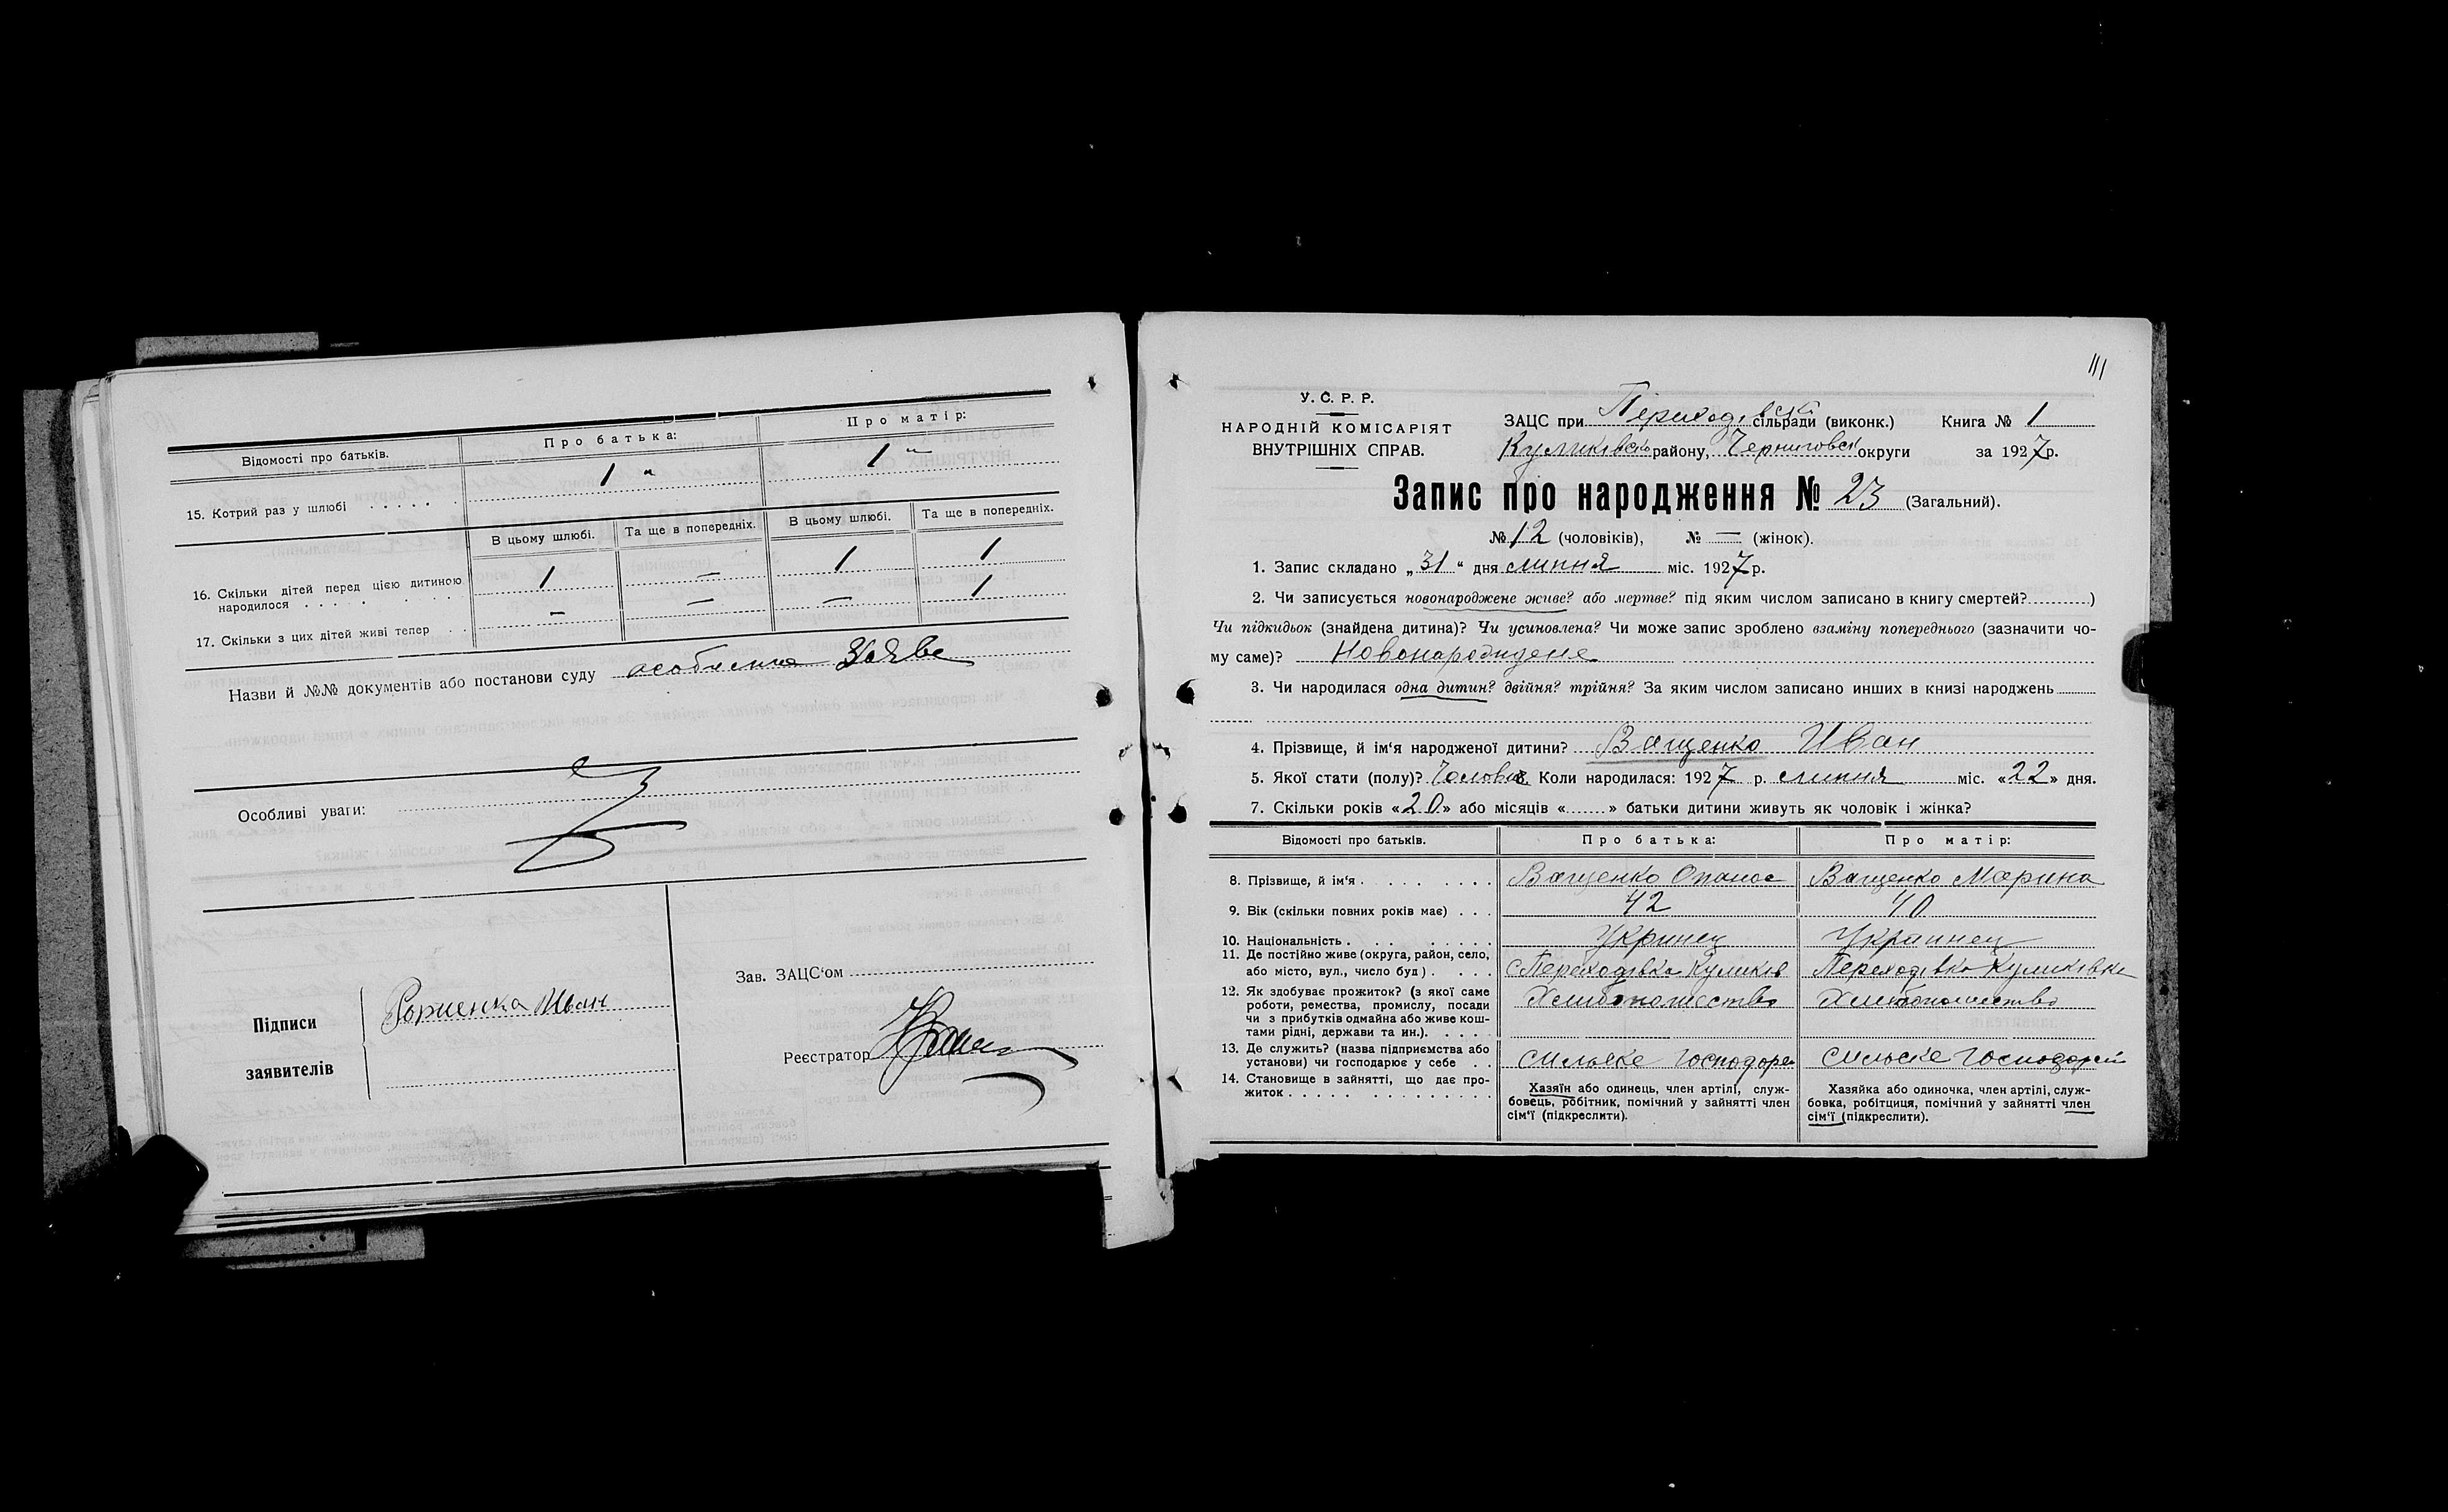 Відомості про батьків.
Про батька:
Про матір:
15. Котрий раз у шлюбі . . . . .
1 "
1 "
В цьому шлюбі.
Та ще в попередніх.
В цьому шлюбі.
Та ще в попередніх.
16. Скільки дітей перед цією дитиною
народилося . . . . . . . .
1
—
1
1
17. Скільки з цих дітей живі тепер . .
—
—
—
1
Назви й №№ документів або постанови суду
Особливі уваги:
Підписи
заявителів
Иван
Зав. ЗАЦС'ом
Реєстратор
111
У. С. Р. Р.
НАРОДНІЙ КОМІСАРІЯТ
ВНУТРІШНІХ СПРАВ.
ЗАЦС при сільради (виконк.) Книга № 1
Куликівськ району, Черниговськ округи за 1927 р.
Запис про народження № 23 (Загальний).
№ 12 (чоловіків), № — (жінок).
1. Запис складано „31" дня липня міс. 1927 р.
2. Чи записується новонароджене живе? або мертве? під яким числом записано в книгу смертей?..........)
Чи підкидьок (знайдена дитина)? Чи усиновлена? Чи може запис зроблено взаміну попереднього (зазначити чо-
му саме)?
3. Чи народилася одна дитин? двійня? трійня? За яким числом записано инших в книзі народжень
4. Прізвище, й ім'я народженої дитини? Ващенко Иван
5. Якої стати (полу)? Коли народилася: 1927 р. липня міс. «22» дня.
7. Скільки років «20» або місяців «......» батьки дитини живуть як чоловік і жінка?
Відомості про батьків.
Про батька:
Про матір:
8. Прізвище, й ім'я . . . . . . . . .
Ващенко Опанас
Ващенко Марина
9. Вік (скільки повних років має) . . .
42
40
10. Національність . . . . . . . .
Укринец
Украинец
11. Де постійно живе (округа, район, село,
або місто, вул., число буд) . . . . .
с Переходівка Куликів
Переходівка Куликівка
12. Як здобуває прожиток? (з якої саме
роботи, ремества, промислу, посади
чи з прибутків одмайна або живе кош-
тами рідні, держави та ин.). . . . .
13. Де служить? (назва підприємства або
установи) чи господарює у себе . .
сильське
сильске
14. Становище в зайнятті, що дає про-
житок . . . . . . . . . . . . .
Хазяїн або одинець, член артілі, служ-
бовець, робітник, помічний у зайнятті член
сім'ї (підкреслити).
Хазяйка або одиночка, член артілі, служ-
бовка, робітциця, помічний у зайнятті член
сім'ї (підкреслити).